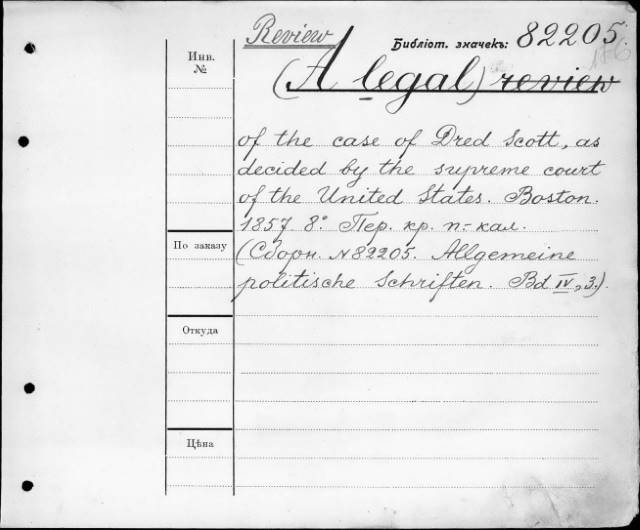 Review
Библіот. значекъ: 82205.
186
Инв.
№
(A legal) review
of the case of Dred Scott, as
decided by the supreme court
of the United States. Boston.
1857. 8°. Пер. кр. п.-кал.
По заказу
(Сборн. N82205. Allgemeine
politische Schriften. Bd IV, 3.).
Откуда
Цѣна